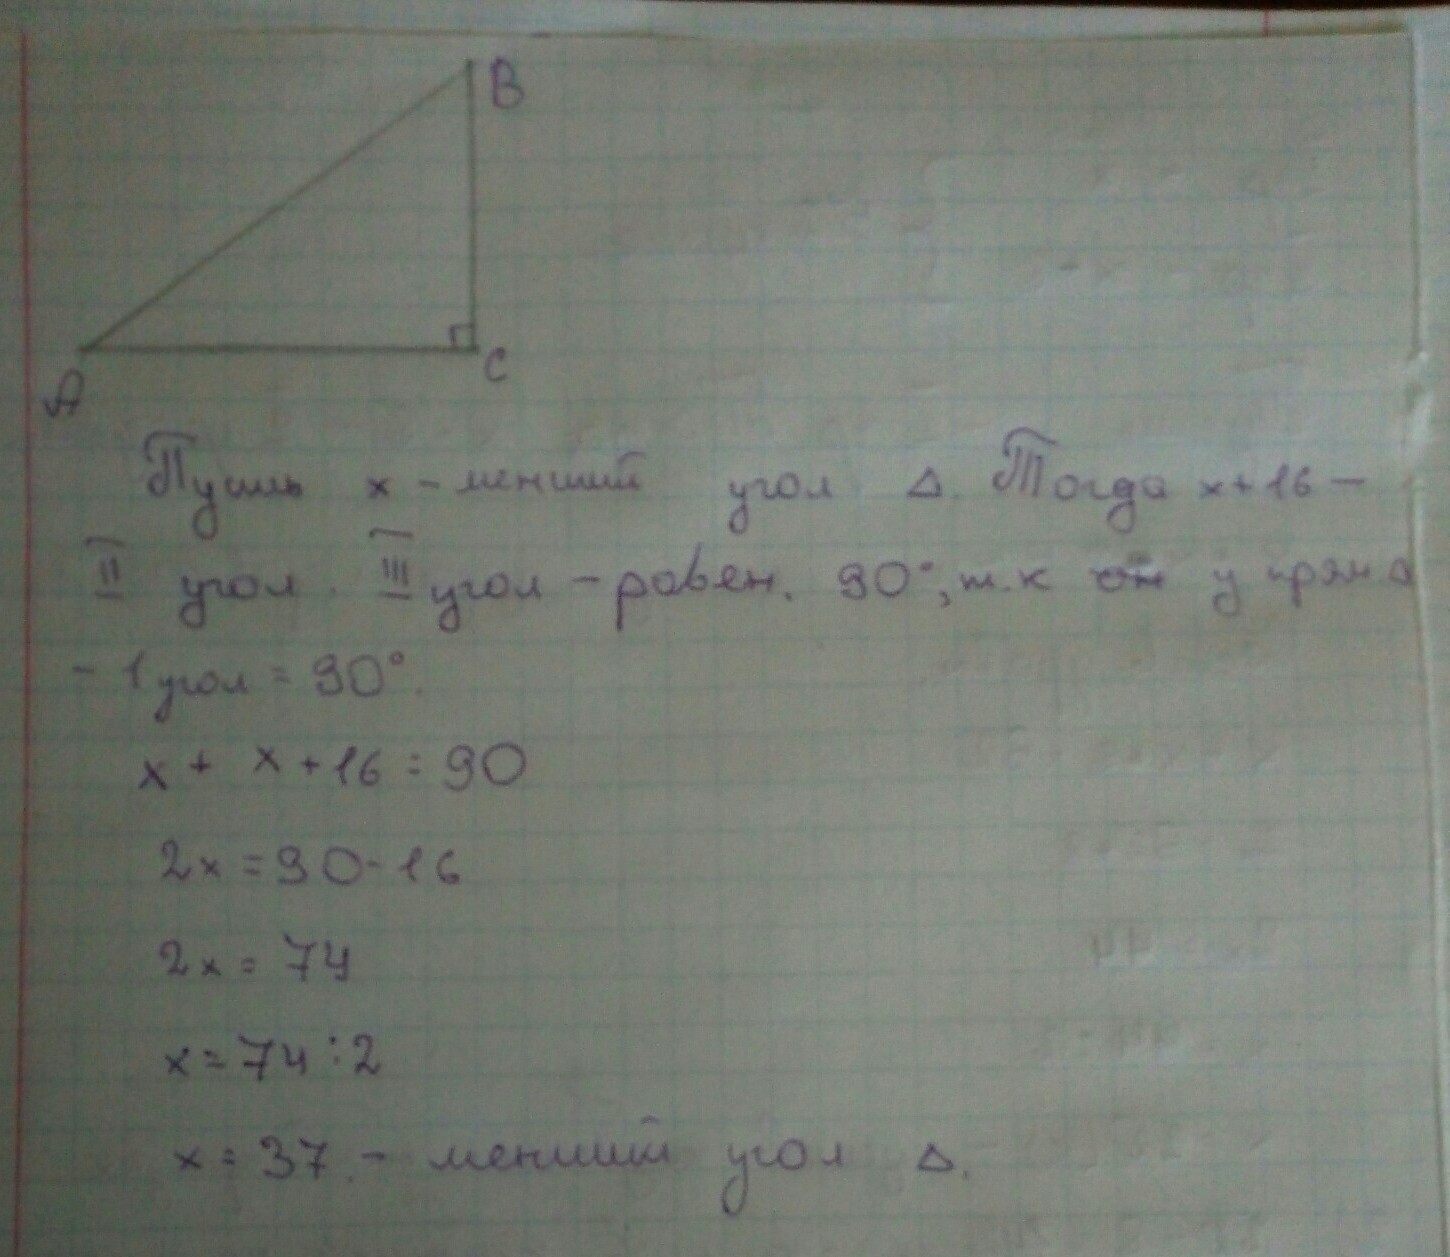 B
A
C
Пусть x - менший угол Δ. Тогда x + 16 -
II угол. III угол - равен. 90°, т.к он у прям Δ
- 1 угол = 90°.
x + x + 16 = 90
2x = 90 - 16
2x = 74
x = 74 : 2
x = 37. - менший угол Δ.